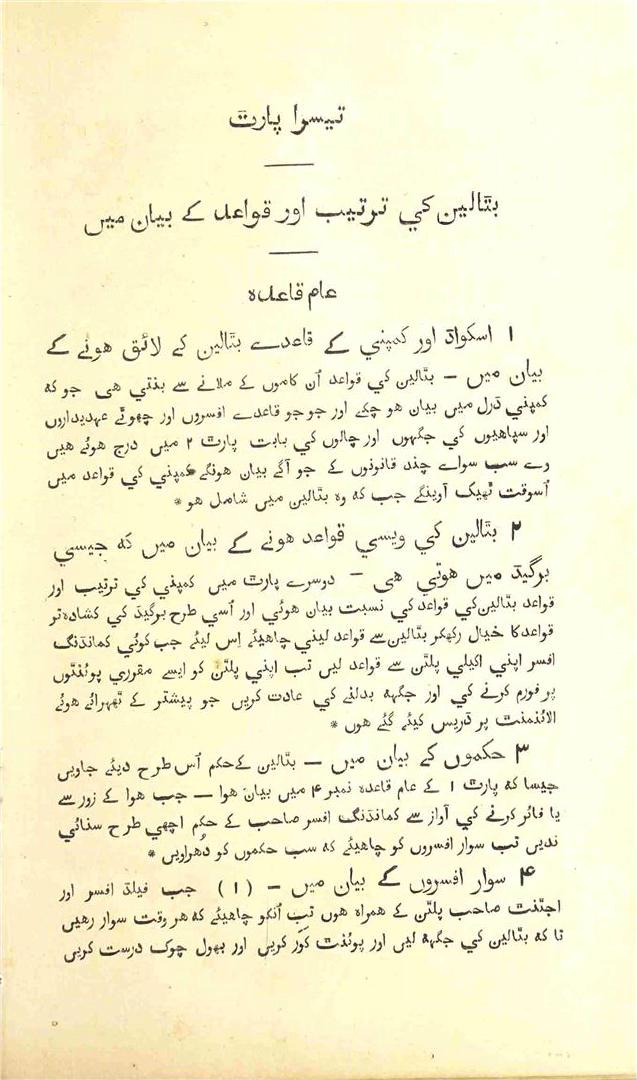 تیسرا پارٹ
بٹالین کي ترتیب اور قواعد کے بیان میں
عام قاعدہ
۱ اسکواڈ اور کمپني کے قاعدے بٹالین کے لائق ہونے کے
بیان میں — بٹالین کي قواعد اُن کاموں کے ملانے سے بنتي ہی جو کہ
کمپني ڈرل میں بیان ہو چکے اور جو جو قاعدے افسروں اور چھوٹے عہدیداروں
اور سپاہیوں کي جگہوں اور چالوں کي بابت پارٹ ۲ میں درج ہوئے ہیں
وے سب سواے چند قانونوں کے جو آگے بیان ہونگے کمپني کي قواعد میں
اُسوقت ٹھیک آوینگے جب کہ وہ بٹالین میں شامل ہو *
۲ بٹالین کي ویسي قواعد ہونے کے بیان میں کہ جیسي
برگیڈ میں ہوتي ہی — دوسرے پارٹ میں کمپني کي ترتیب اور
قواعد بٹالین کي قواعد کي نسبت بیان ہوئي اور اُسي طرح برگیڈ کي کشادہ تر
قواعد کا خیال رکھکر بٹالین سے قواعد لیني چاہیئے اِس لیئے جب کوئي کمانڈنگ
افسر اپني اکیلي پلٹن سے قواعد لیں تب اپني پلٹن کو ایسے مقرري پوئنٹوں
پر فورم کرنے کي اور جگہہ بدلنے کي عادت کریں جو پیشتر کے ٹھہرائے ہوئے
الائنمنٹ پر ڈریس کیئے گئے ہوں *
۳ حکموں کے بیان میں — بٹالین کے حکم اُس طرح دیئے جاویں
جیسا کہ پارٹ ۱ کے عام قاعدہ نمبر ۴ میں بیان ہوا — جب ہوا کے زور سے
یا فائر کرنے کي آواز سے کمانڈنگ افسر صاحب کے حکم اچھي طرح سنائي
ندیں تب سوار افسروں کو چاہیئے کہ سب حکموں کو دُہراویں *
۴ سوار افسروں کے بیان میں — (۱) جب فیلڈ افسر اور
اجٹنٹ صاحب پلٹن کے ہمراہ ہوں تب اُنکو چاہیئے کہ ہر وقت سوار رہیں
تا کہ بٹالین کي جگہہ لیں اور پوئنٹ کَور کریں اور بھول چوک درست کریں